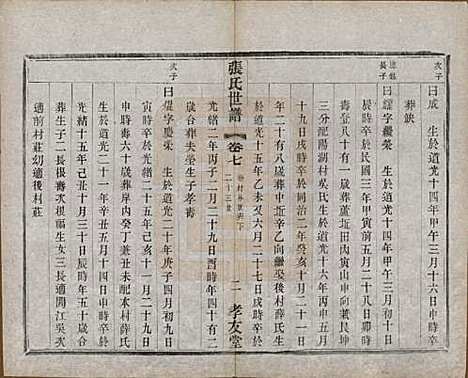 次子
曰成 生於道光十四年甲午三月十六日時卒
葬缺
長子
曰 字繼榮 生於道光十四年甲午三月初十日
辰時卒於民國三年甲寅前五月二十八日卯時
享壽八十一歲葬蘆圻田內寅山申向兼艮坤
三分 配陽湖村吳氏生於道光十六年丙申六月
十九日戌時卒於同治二年癸亥十月二十六日
年二十有八歲葬中圻辛乙向 後村薛氏生
於道光十五年乙未又六月二十七日戌時卒於
光緒二年丙子二月二十九日酉時年四十有二
歲合葬夫塋生子孝壽
張氏世譜
卷七
二十三世
二
孝友堂
次子
曰 字慶榮 生於道光二十年庚子四月初九日
寅時卒於光緒二十九年癸卯四月二十九日
申時壽六十四歲葬 配本村薛氏
生於道光二十一年辛丑十二月 未時卒於
光緒十五年己丑十月三十日戌時年五十歲合
葬生子二長根壽次根福生女三長適開江吳次
適前村莊幼適後村莊